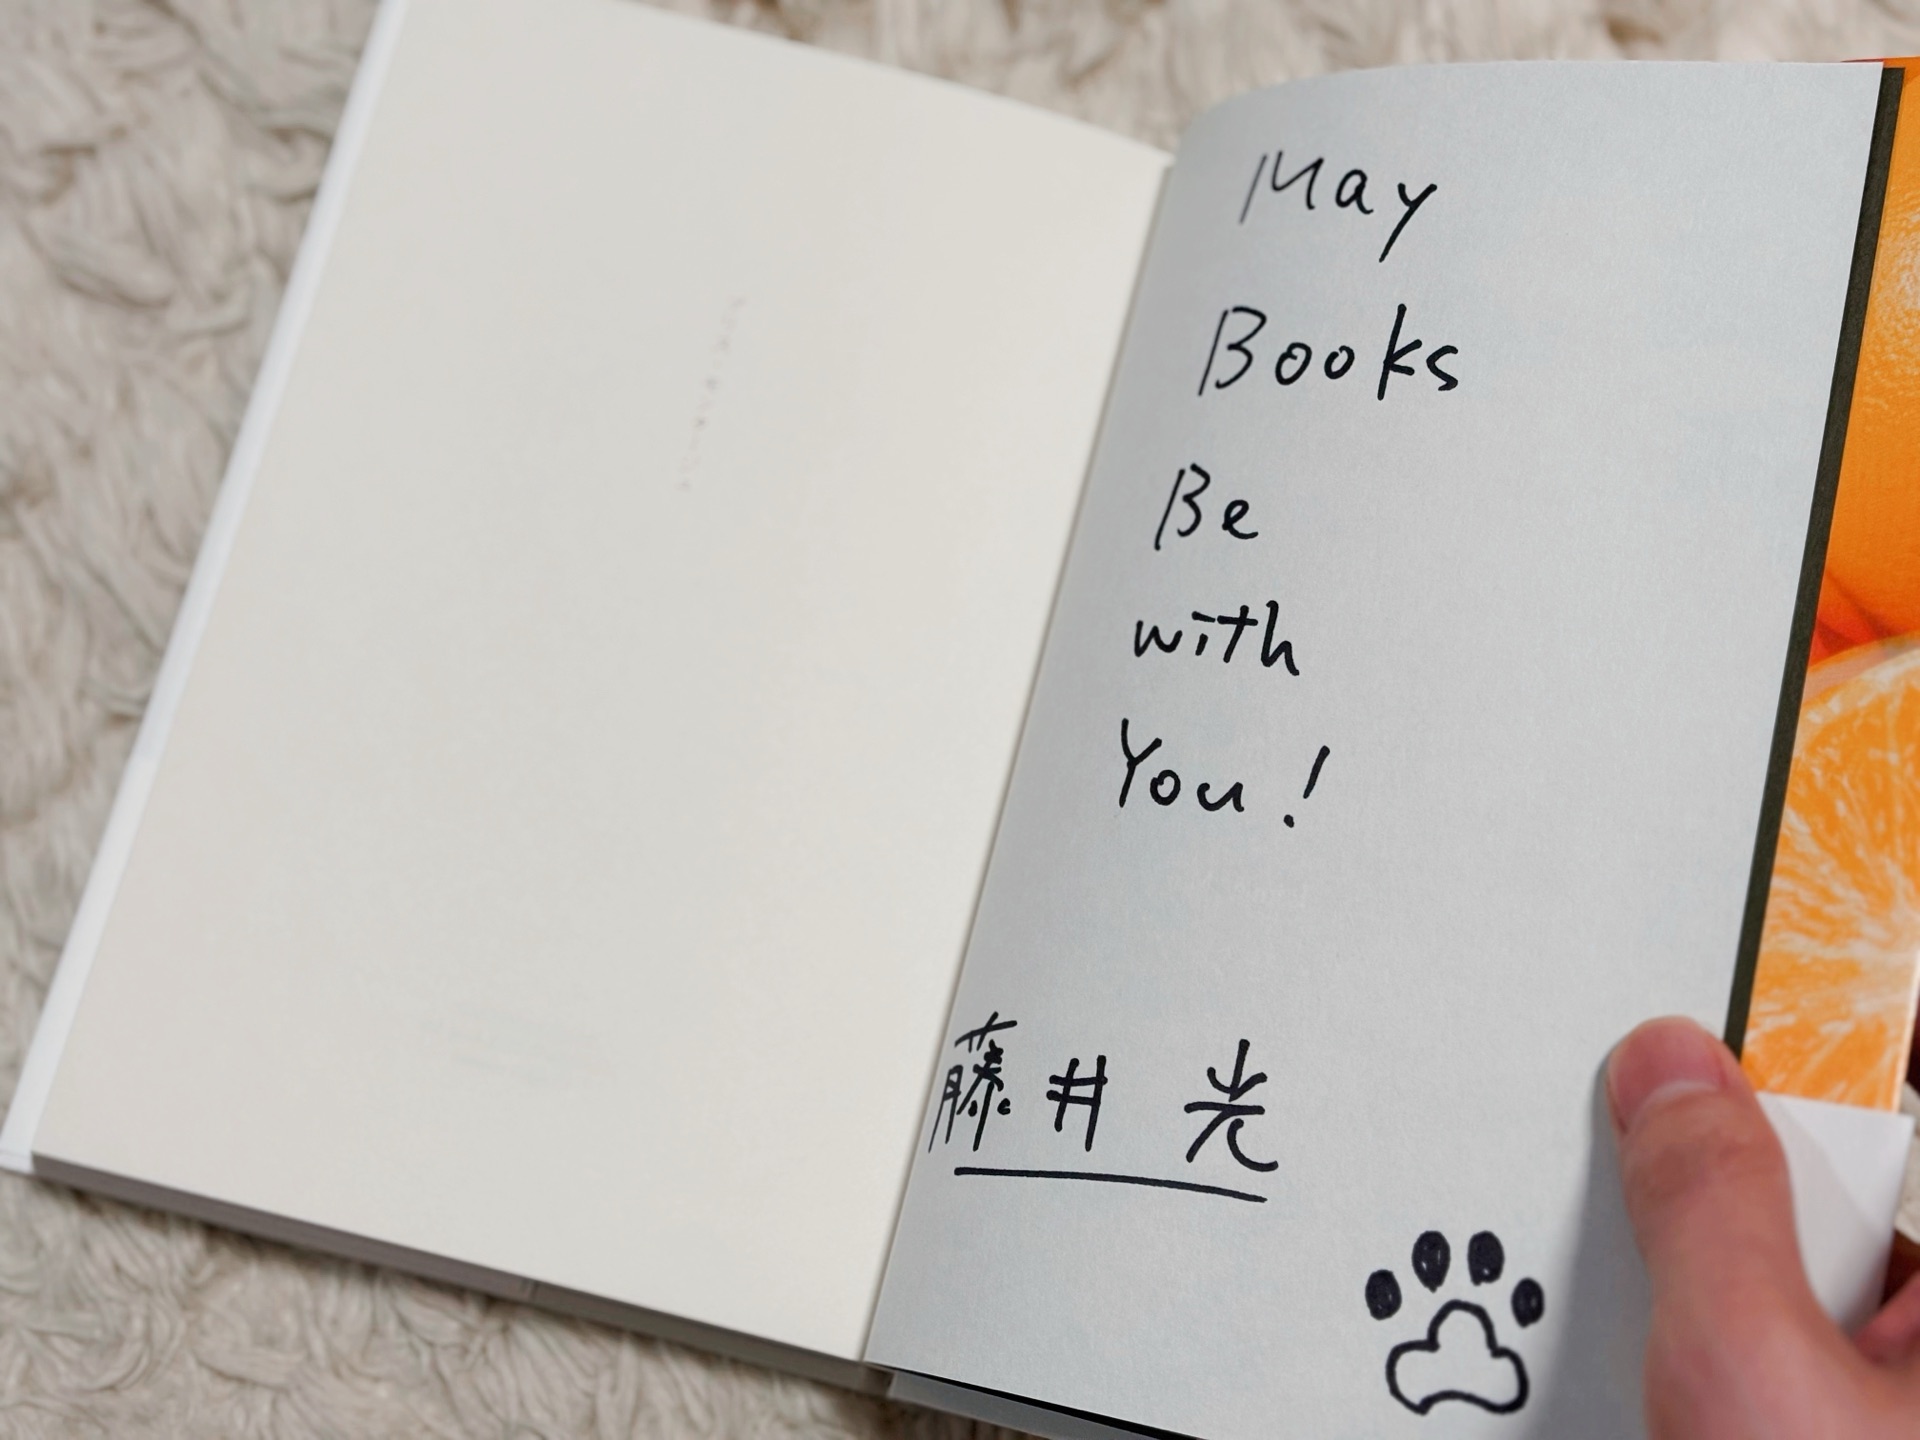 May
Books
Be
with
You!
藤井 光